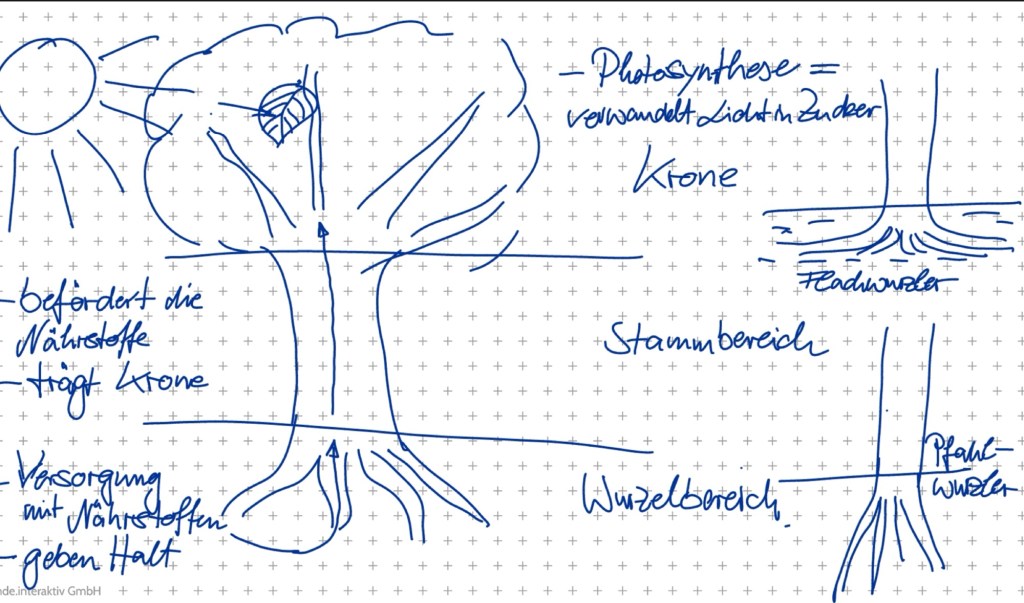 - Photosynthese =
verwandelt Licht in Zucker
Krone
Flachwurzler
- befördert die
Nährstoffe
- trägt Krone
Stammbereich
- Versorgung
mit Nährstoffen
- geben Halt
Wurzelbereich
Pfahl-
wurzler
nde.interaktiv GmbH